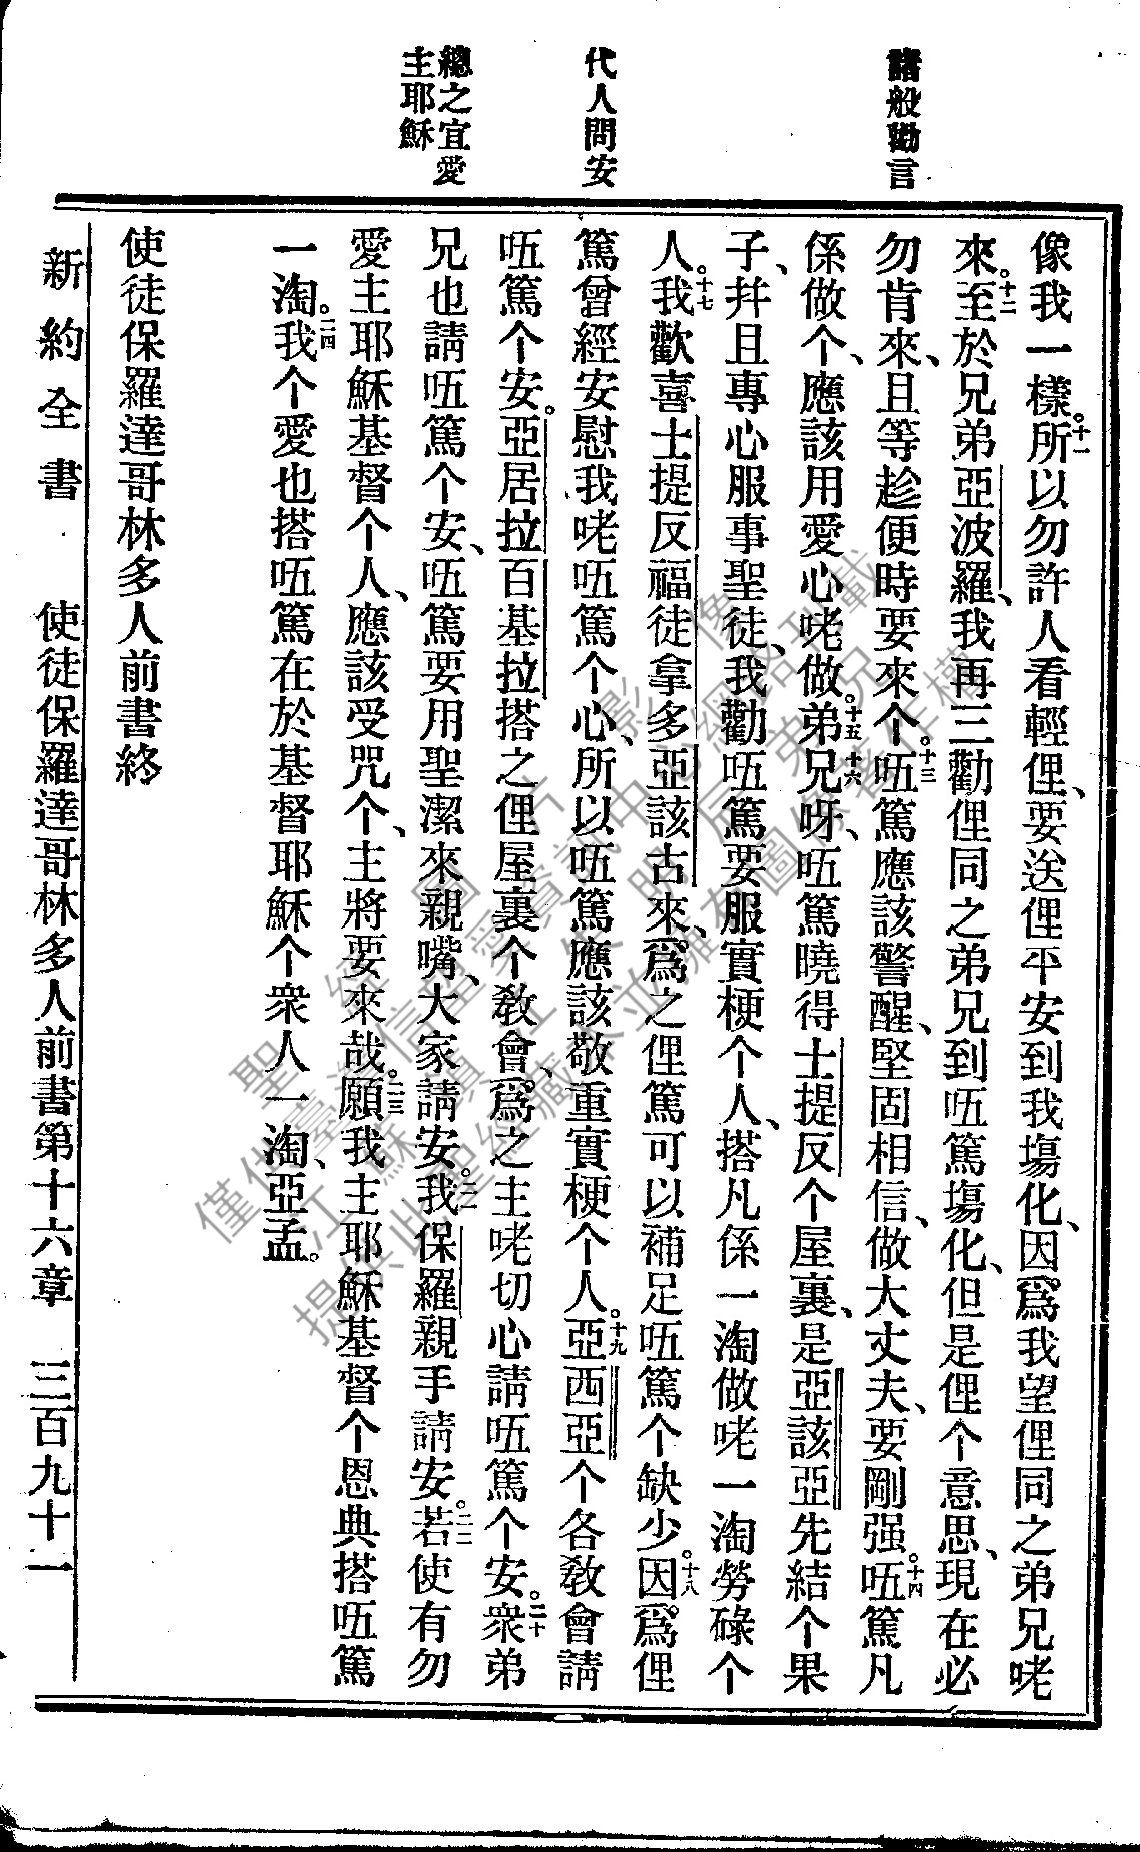 諸般勸言
代人問安
總之宜愛
主耶穌
像我一樣。十一所以勿許人看輕俚、要送俚平安到我塲化、因爲我望俚同之弟兄咾
來。十二至於兄弟亞波羅、我再三勸俚同之弟兄到㕶篤塲化、但是俚个意思、現在必
勿肯來、且等趁便時要來个。十三㕶篤應該警醒、堅固相信、做大丈夫、要剛强。十四㕶篤凡
係做个、應該用愛心咾做。十五弟兄呀、十六㕶篤曉得士提反个屋裏、是亞該亞先結个果
子、幷且專心服事聖徒、我勸㕶篤要服實梗个人、搭凡係一淘做咾一淘勞碌个
人。十七我歡喜士提反福徒拿多亞該古來、爲之俚篤可以補足㕶篤个缺少。十八因爲俚
篤曾經安慰我咾㕶篤个心、所以㕶篤應該敬重實梗个人。十九亞西亞个各敎會請
㕶篤个安。亞居拉百基拉搭之俚屋裏个敎會、爲之主咾切心請㕶篤个安。二十衆弟
兄也請㕶篤个安、㕶篤要用聖潔來親嘴、大家請安。二一我保羅親手請安。二二若使有勿
愛主耶穌基督个人、應該受咒个、主將要來哉。二三願我主耶穌基督个恩典搭㕶篤
一淘。二四我个愛也搭㕶篤在於基督耶穌个衆人一淘、亞孟。
使徒保羅達哥林多人前書終
新約全書 使徒保羅達哥林多人前書第十六章 三百九十一
聖經圖片影像
僅供臺灣信望愛資訊中心網路刊載
江蘇鎮江朱明辰弟兄
提供此聖經藏本並擁有圖像著作權